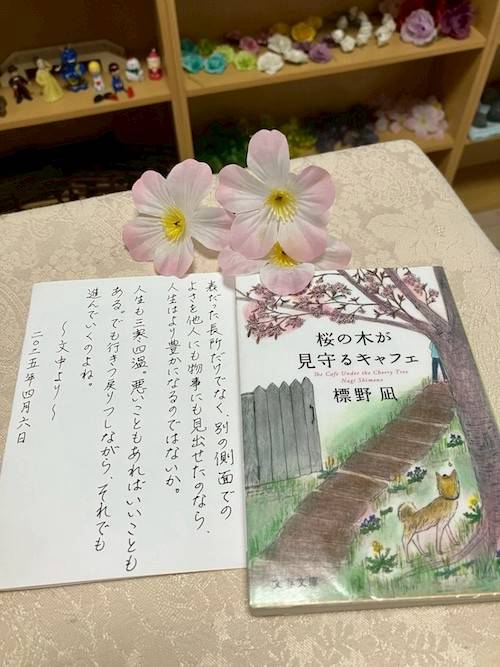 表だった長所だけでなく、別の側面での
よさを他人にも物事にも見出せたのなら、
人生はより豊かになるのではないか。
人生も三寒四温。悪いこともあればいいことも
ある。でも行きつ戻りつしながら、それでも
進んでいくのよね。
〜文中より〜
二〇二五年四月六日
桜の木が
見守るキャフェ
The Cafe Under the Cherry Tree
Nagi Shimeno
標野 凪
文春文庫